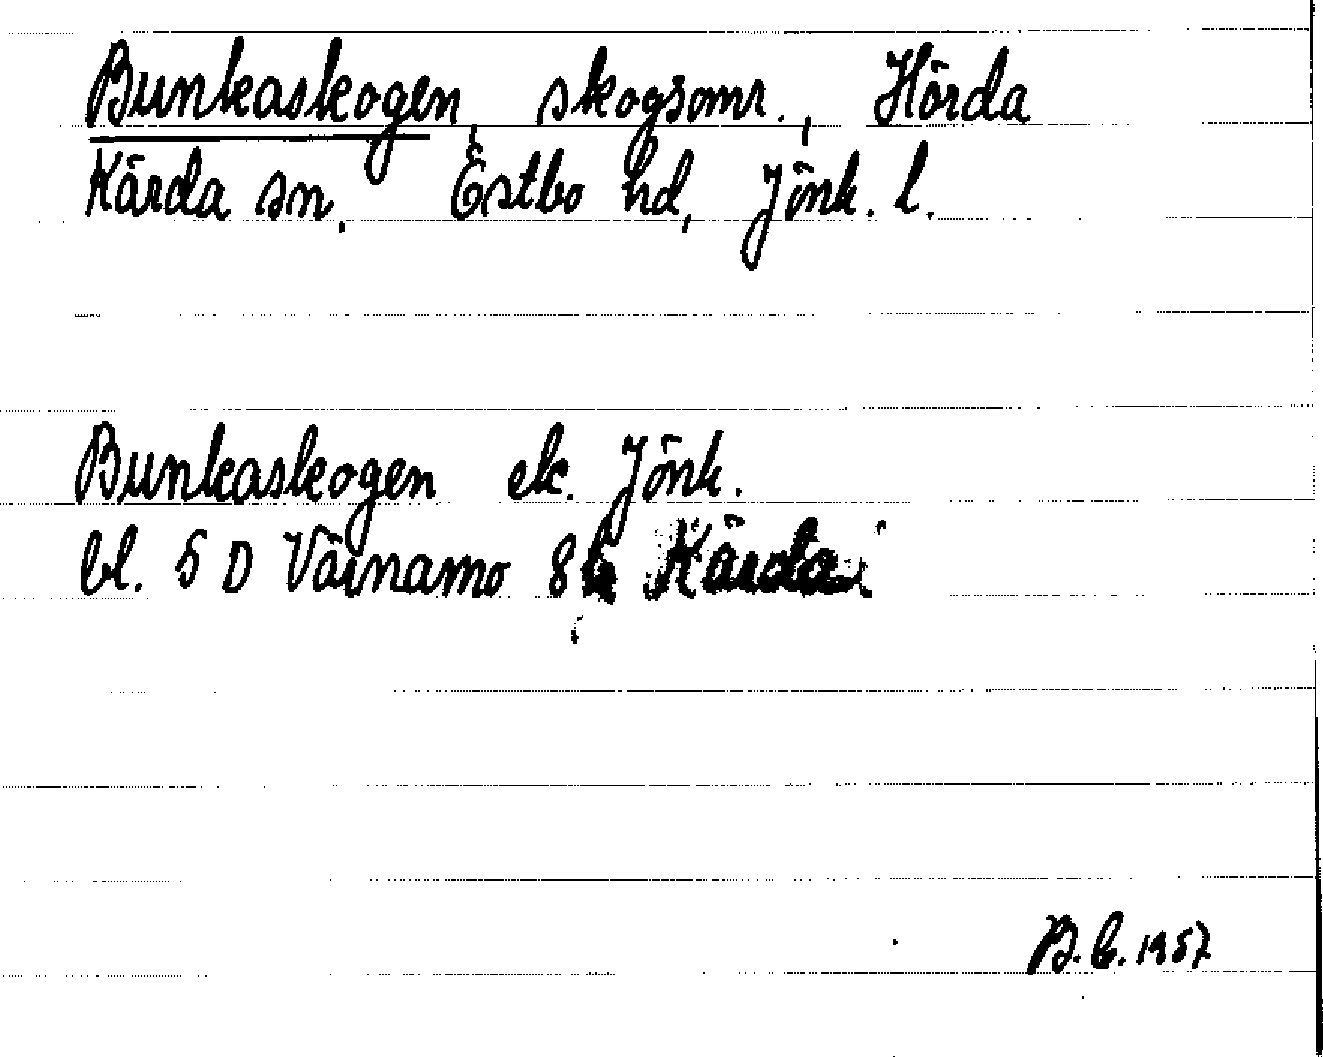 Bunkaskogen, skogsomr., Hörda
Kärda sn. Östbo hd, Jönk. l.
Bunkaskogen ek. Jönk.
bl. 5 D Värnamo 8 Kärda
B.b. 1957